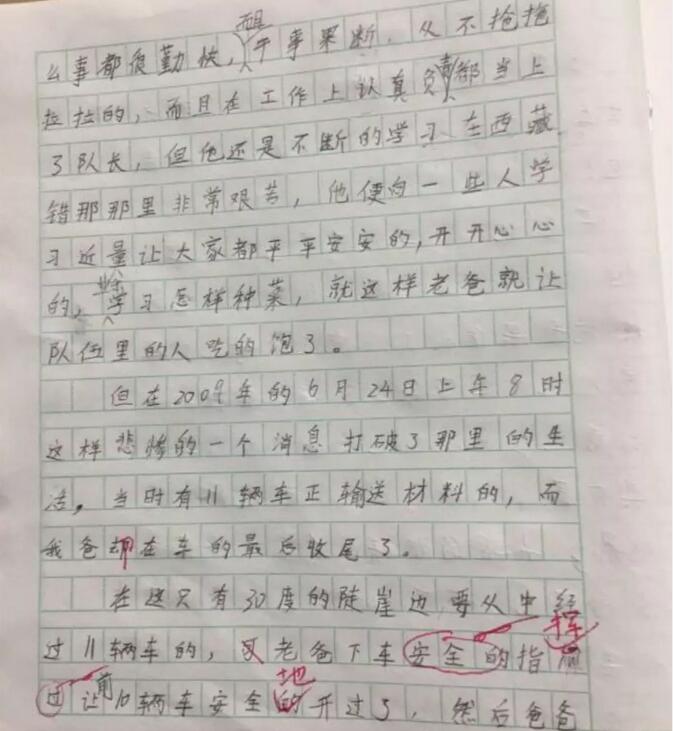 么事都很勤快,而且干事果断,从不拖拖
拉拉的,而且在工作上认真负责都当上
了队长,但他还是不断的学习在西藏
错那那里非常艰苦,他便向一些人学
习近量让大家都平平安安的,开开心心
的,学习怎样种菜,就这样老爸就让
队伍里的人吃的饱了。
但在2009年的6月24日上午8时
这样悲惨的一个消息打破了那里的生
活。当时有11辆车正输送材料的,而
我爸却在车的最后收尾了。
在这只有30度的陡崖边要从中经
过11辆车的,老爸下车安全的指挥
过让前10辆车安全的地开过了,然后爸爸